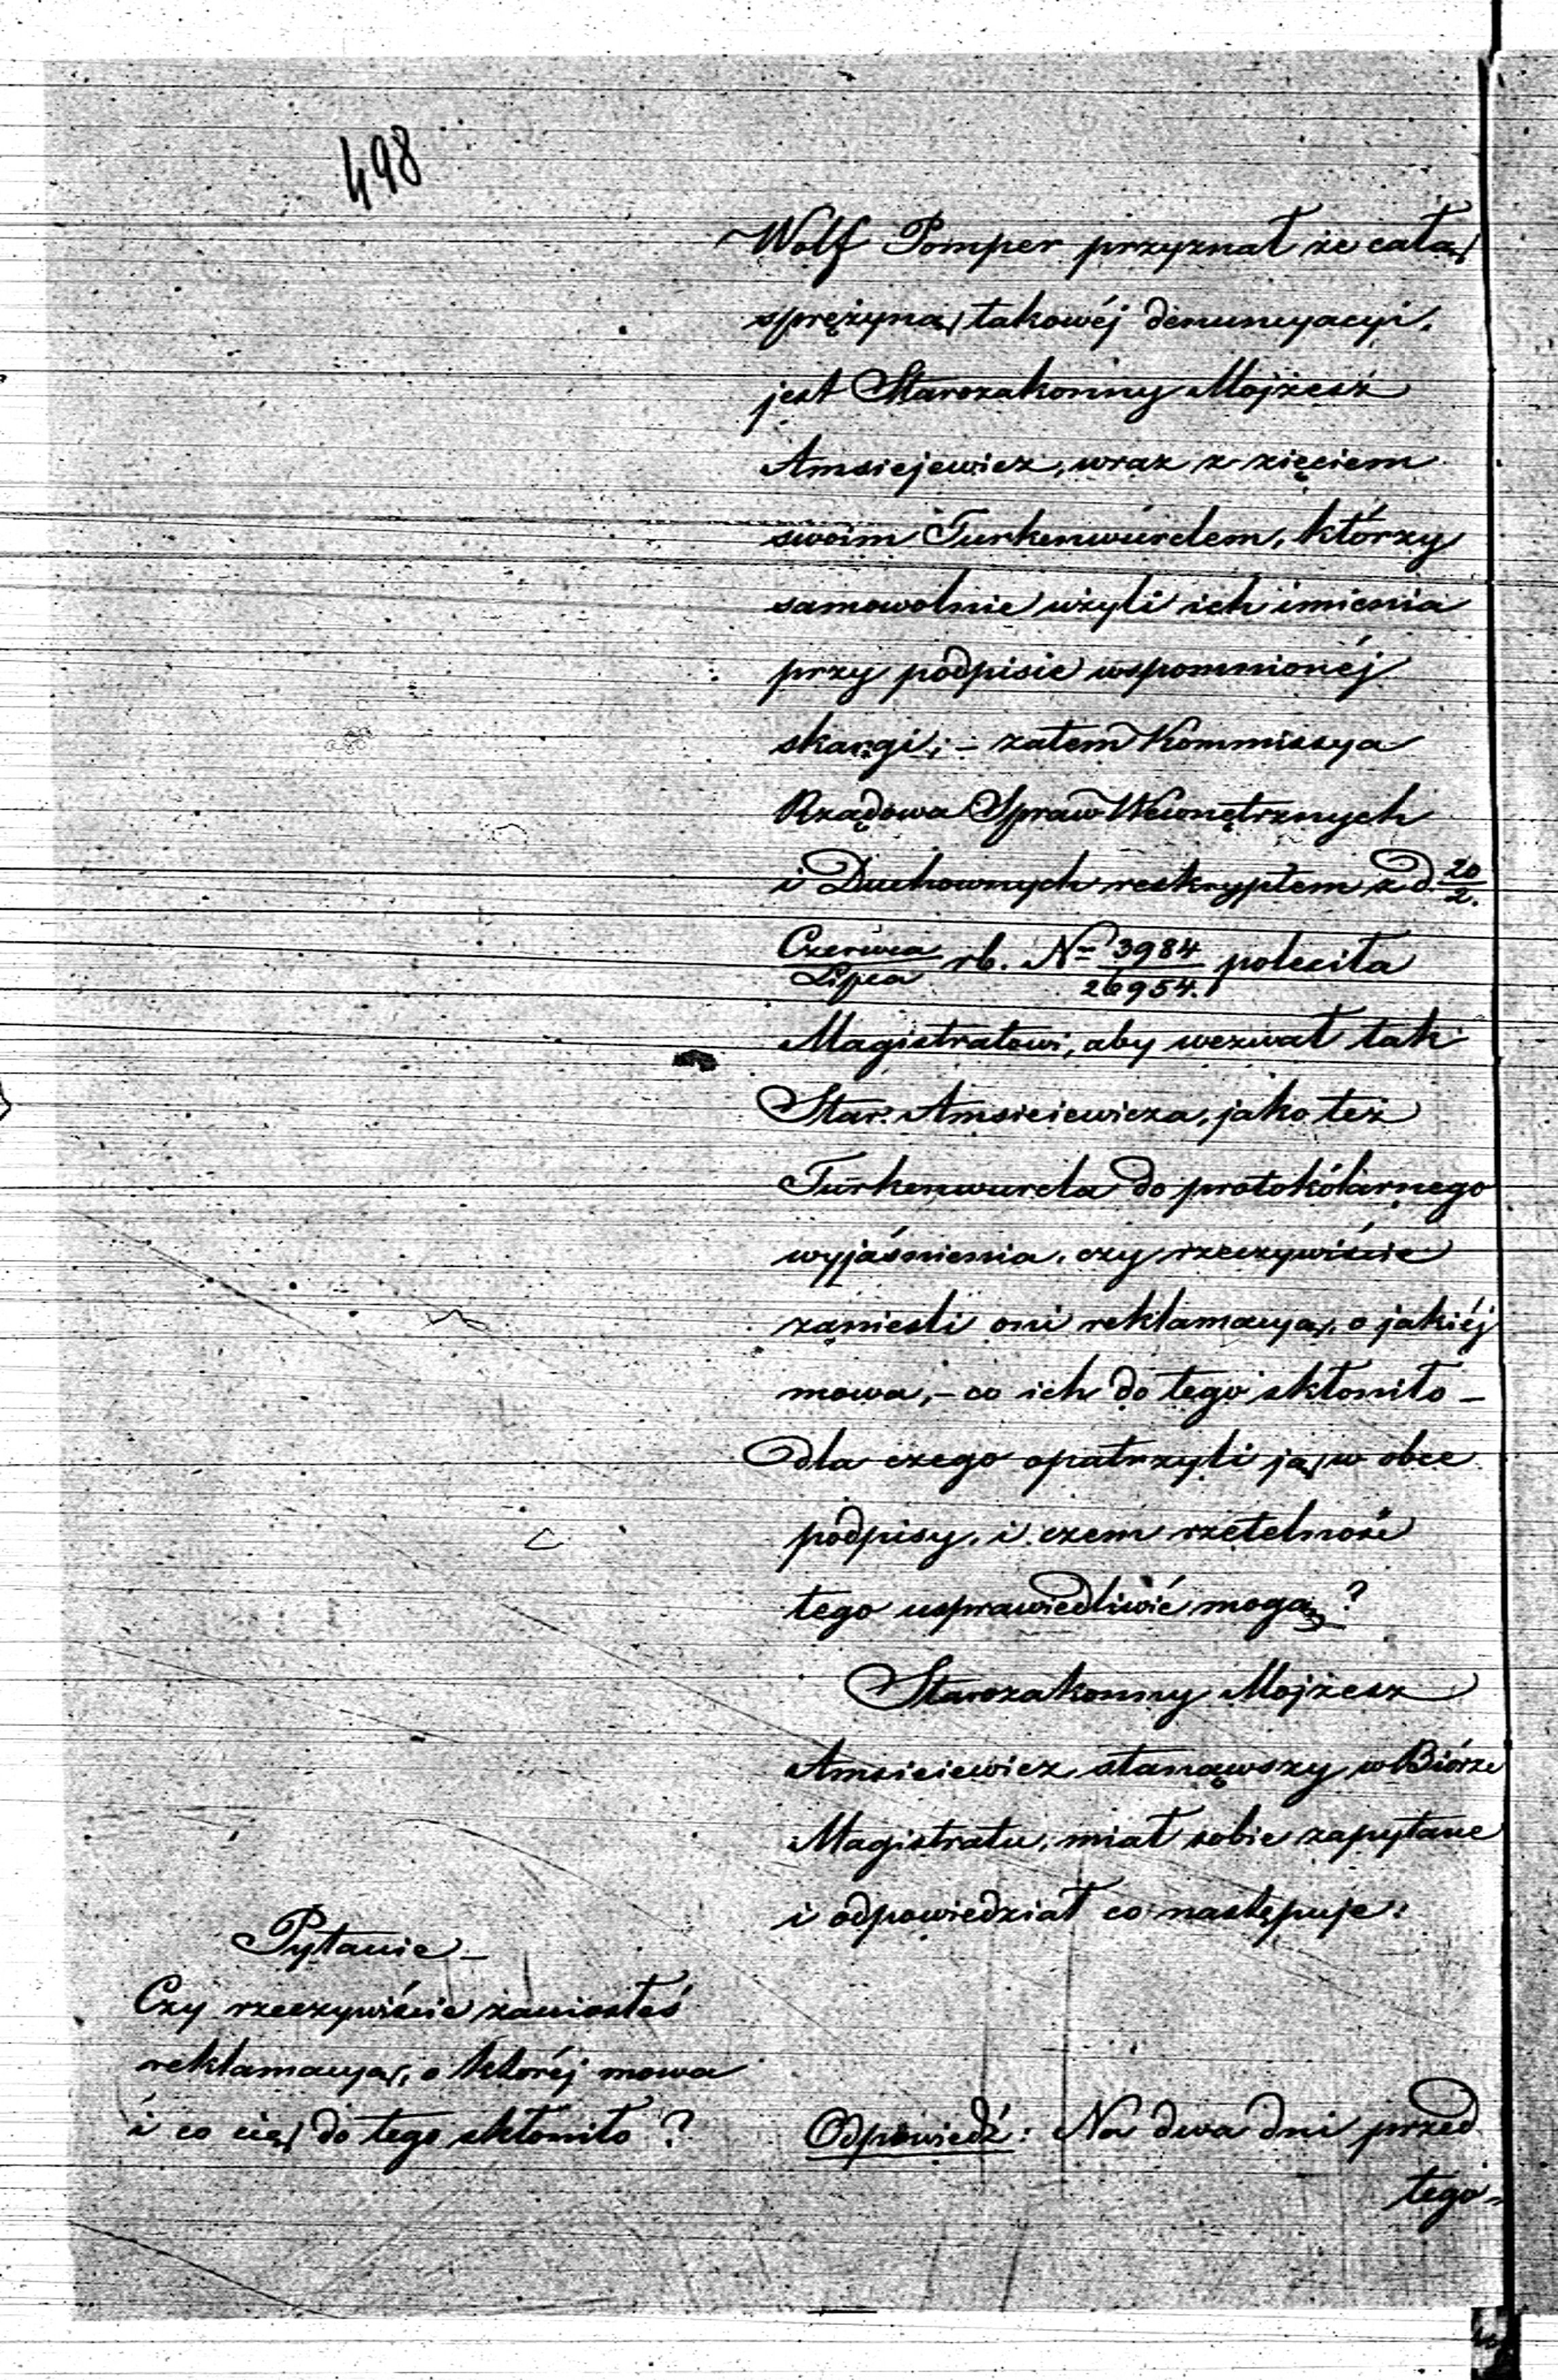 498
Wolf Pomper przyznał że całą
sprężyną takowéj denuncyacyi,
jest Starozakonny Mojżesz
Amsiejewicz, wraz z zięciem
swoim Turkenwürdem, którzy
samowolnie użyli ich imienia
przy podpisie wspomnionéj
skargi; – zatem Kommissya
Rządowa Spraw Wewnętrznych
i Duchownych reskryptem z d. 20/2.
Czerwca/Lipca rb. No 3984/26954. poleciła
Magistratowi, aby wezwał tak
Star: Amsieiewicza, jako też
Türkenwurda do protokólarnego
wyjaśnienia, czy rzeczywiście
zanieśli oni reklamacyą, o jakiéj
mowa, – co ich do tego skłoniło –
dla czego opatrzyli ją w obce
podpisy, i czem rzetelność
tego usprawiedliwić mogą?
Starozakonny Mojżesz
Amsieiewicz stanąwszy w Biórze
Magistratu, miał sobie zapytane
i odpowiedział co następuje:
Pytanie –
Czy rzeczywiście zaniosłeś
reklamacyą, o któréj mowa
i co cię do tego skłoniło?
Odpowiedź: Na dwa dni przed
tego-